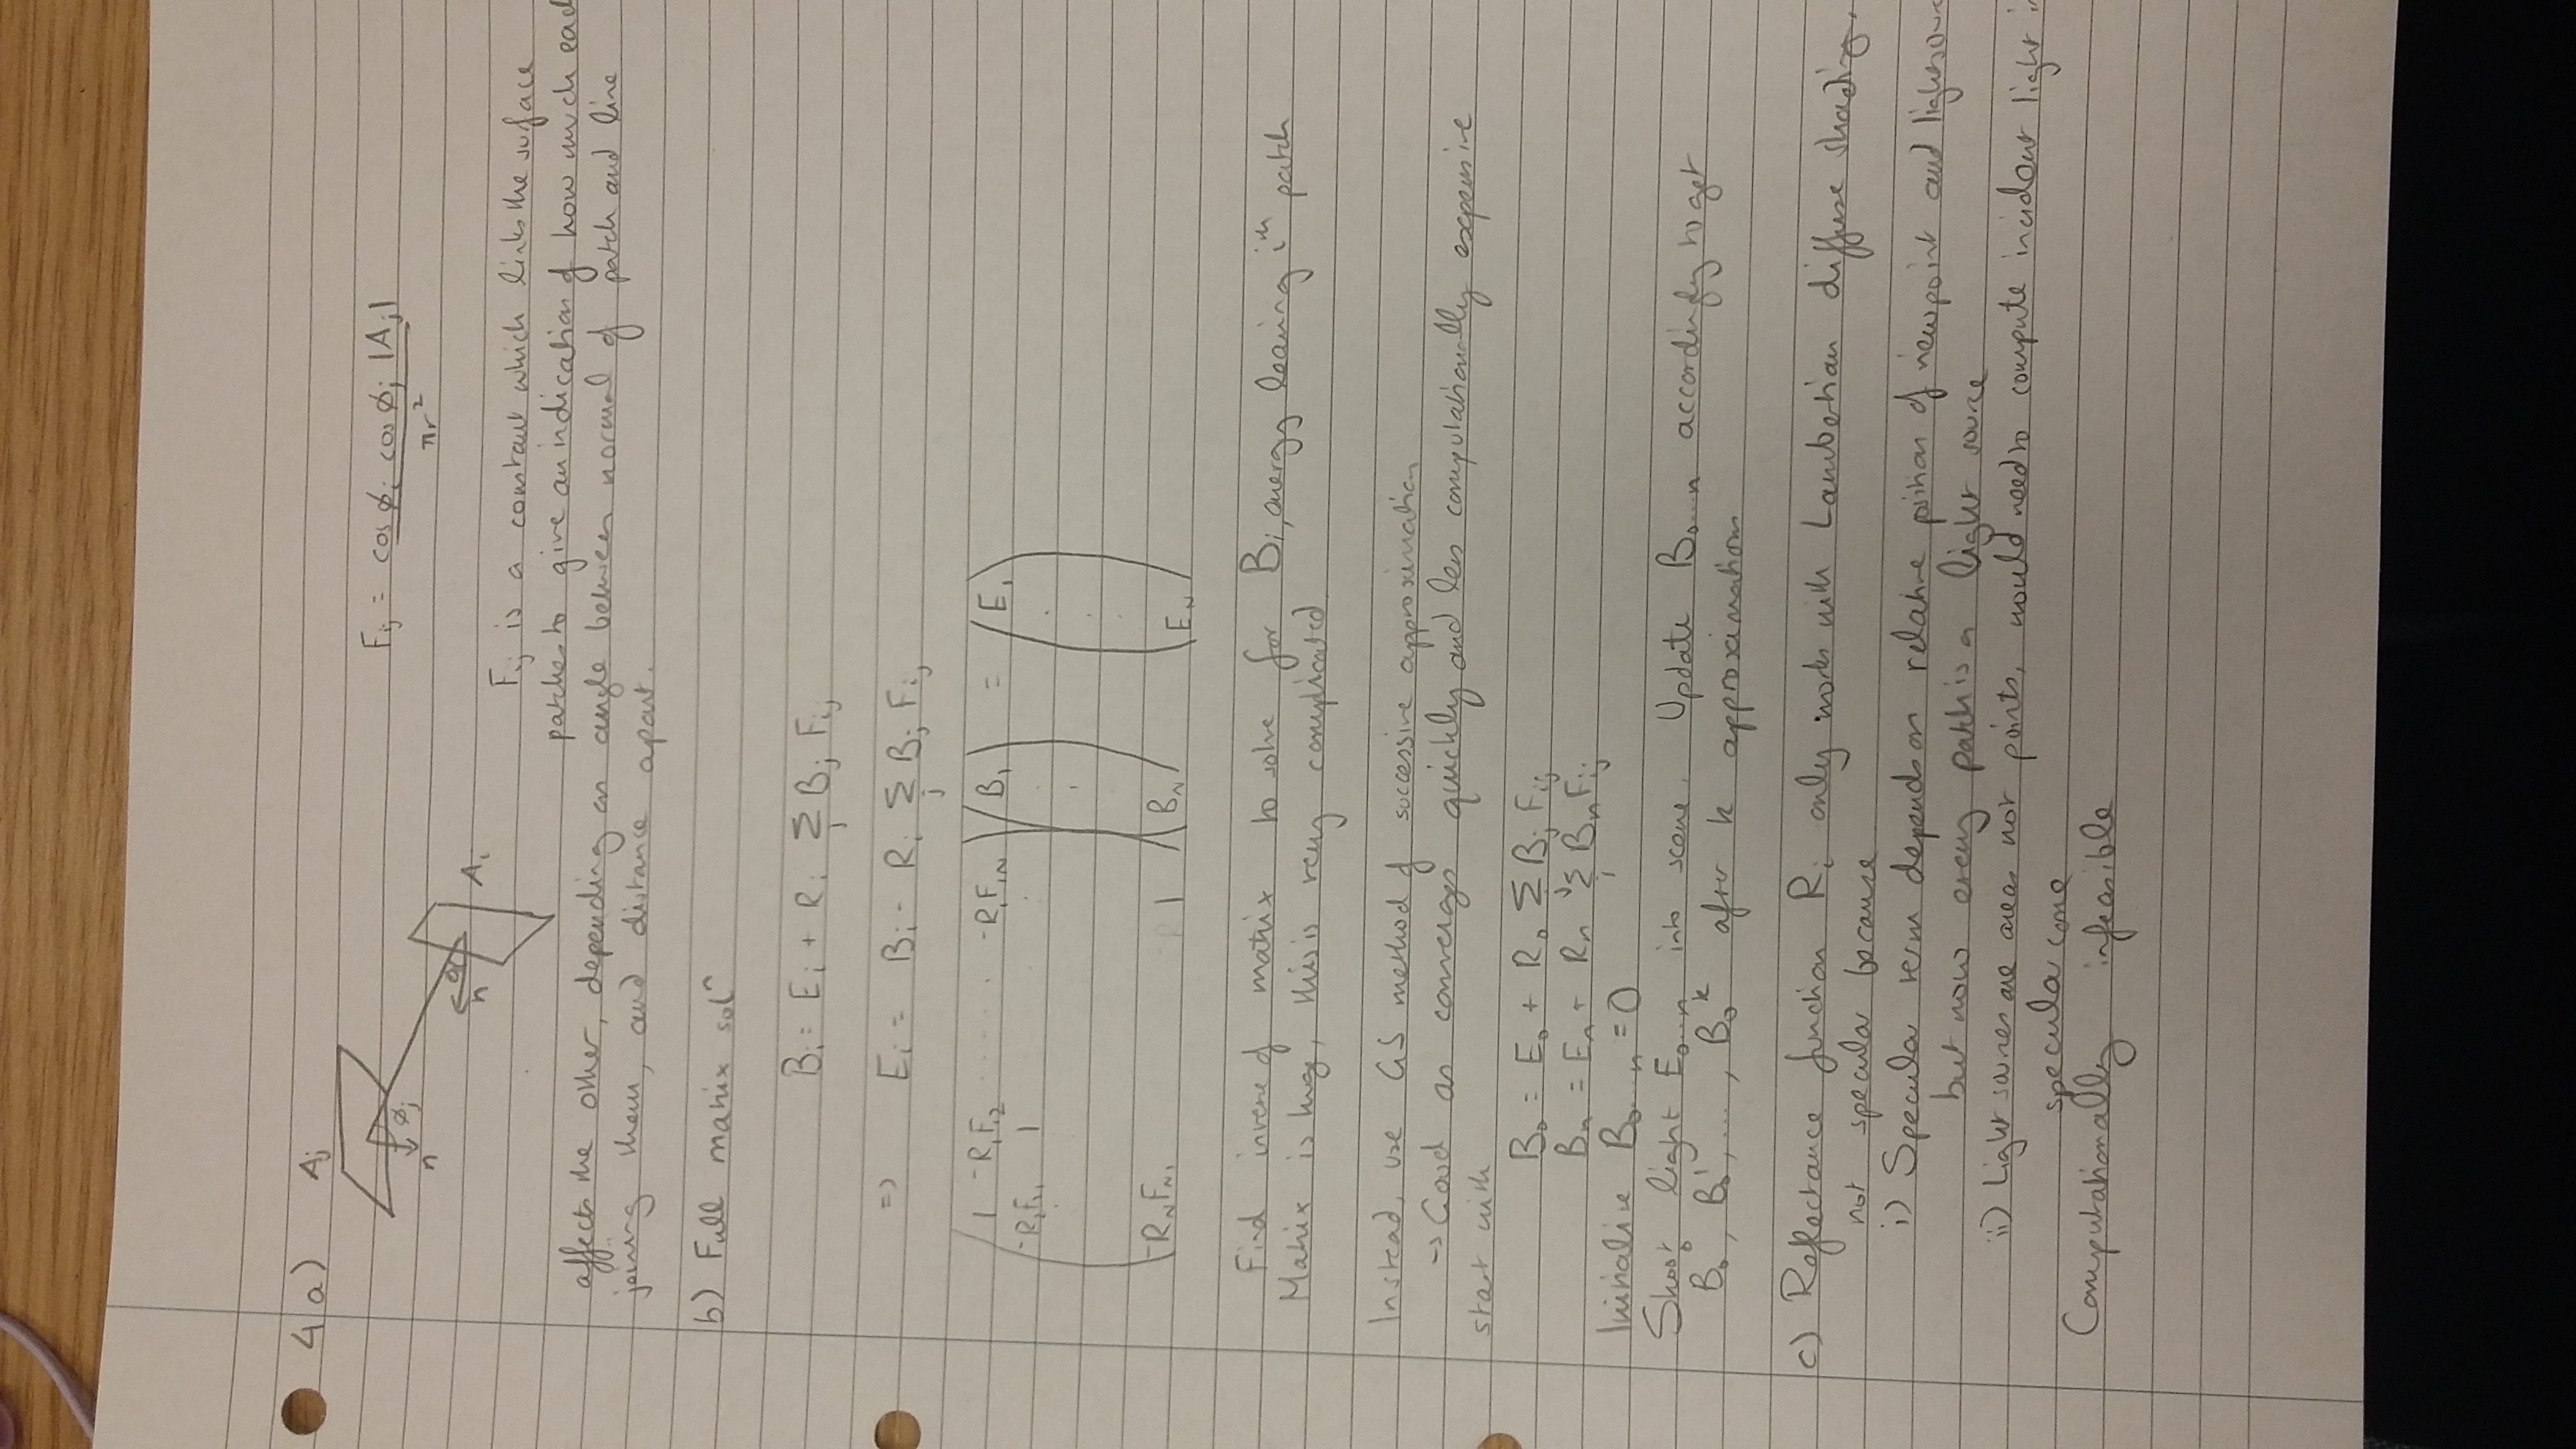 4 a) Aj
Fij = cos ϕi cos ϕj |Aj|
πr²
ϕj
n
n
Ai
Fij is a constant which links the surface
patches to give an indication of how much each
affects the other, depending on angle between normal of patch and line
joining them, and distance apart.
b) Full matrix solⁿ
Bi = Ei + Ri Σj Bj Fij
=> Ei = Bi - Ri Σj Bj Fij
1 -R1F12 ..... -R1F1N B1 = E1
1
-RNFN1 1 BN EN
Find inverse of matrix to solve for Bi, energy leaving ith patch
Matrix is huge, this is very complicated.
Instead, use GS method of successive approximation
-> Good as converges quickly and less computationally expensive
start with
B0 = E0 + R0 Σj Bj Fij
Bn = En + Rn Σj Bn Fij
Initialise B0...n = 0
Shoot light E0...n into scene. Update B0...n accordingly to get
B0⁰, B0¹, ..., B0ᵏ after k approximations
c) Reflectance function Ri only works with Lambertian diffuse shading,
not specular because
i) Specular term depends on relative position of viewpoint and light
but now every patch is a light source
ii) Light sources are areas not points, would need to compute incident light in
specular cone
Computationally infeasible